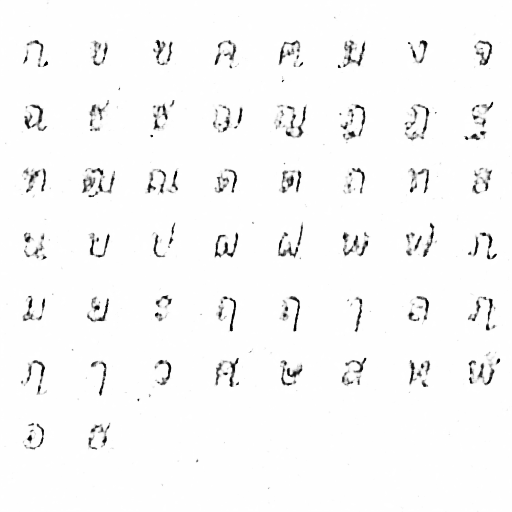 ก ข ฃ ค ฅ ฆ ง จ
ฉ ช ซ ฌ ญ ฎ ฏ ฐ
ฑ ฒ ณ ด ต ถ ท ส
น บ ป ผ ฝ พ ฟ ภ
ม ย ร ฤ ฤ า ล ภ
ภ า ว ศ ษ ส ห พ
อ ฮ